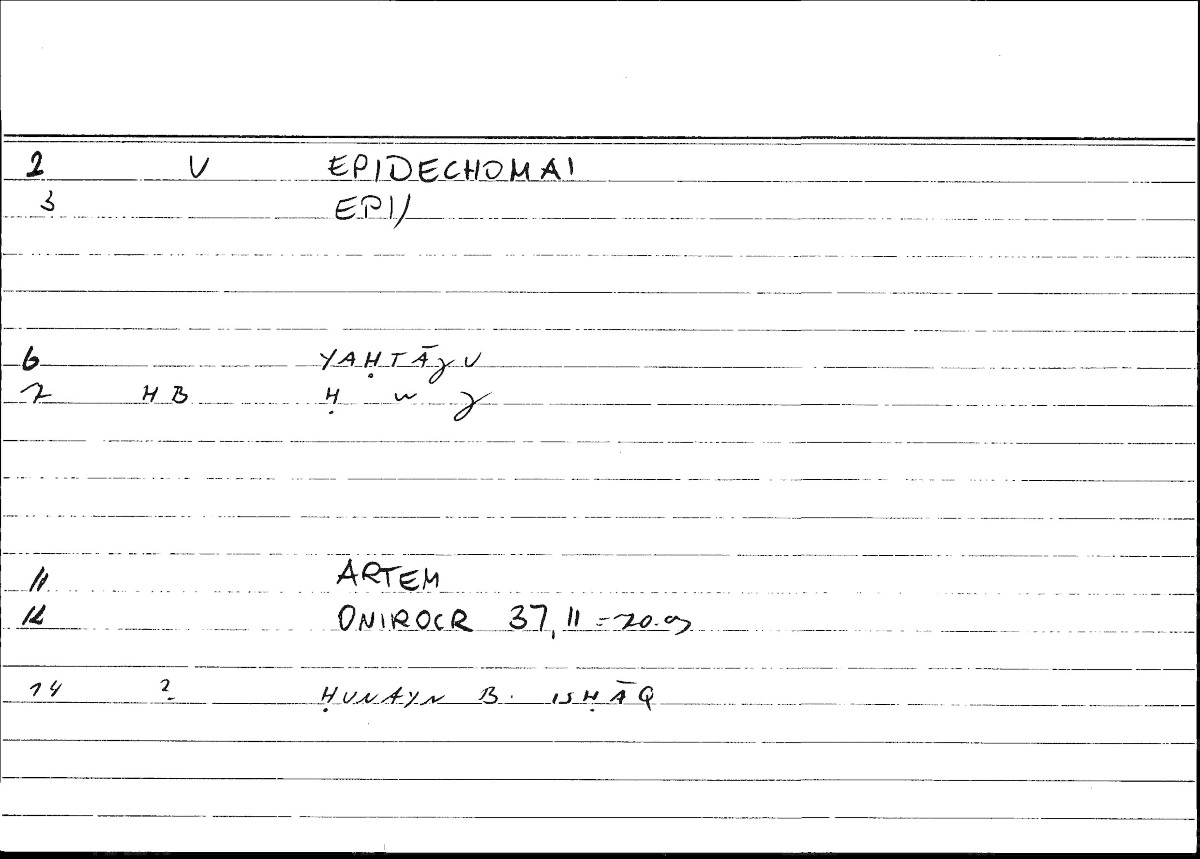 2 V EPIDECHOMAI
3 EPI/
6 YAḤTĀǧU
7 HB Ḥ w ǧ
11 ARTEM
12 ONIROCR 37,11 = 20.
14 2 ḤUNAYN B. ISḤĀQ